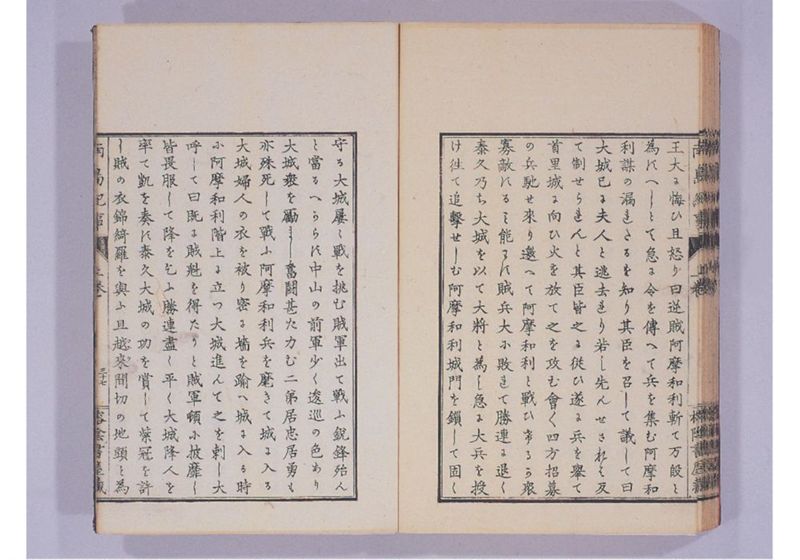 王大に悔ひ且怒り曰逆賊阿摩和利斬て万段と
為すへしとて急に令を傳へて兵を集む阿摩和
利謀の漏れたるを知り其臣を召して議して曰
大城已に夫人と逃去たり若し先んせされは反
て制せられんと其臣皆之に従ひ遂に兵を擧て
首里城に向ひ火を放て之を攻む會〻四方招募
の兵馳せ來り邀へて阿摩和利と戦ひ衆
寡敵する能はす賊兵大に敗れて勝連に退く
泰久乃ち大城を以て大將と為し急に大兵を授
け往て追撃せしむ阿摩和利城門を鎖して固く
守る大城屢〻戦を挑む賊軍出て戦ふ鋭鋒殆ん
と當るへからす中山の前軍少く逡巡の色あり
大城衆を勵まし奮闘甚た力む二弟居忠居勇も
亦殊死して戦ふ阿摩和利兵を麾きて城に入る
大城婦人の衣を被り密に墻を踰へ城に入る時
に阿摩和利階上に立つ大城進んて之を刺し大
呼して曰既に賊魁を得たりと賊軍頓に披靡し
皆畏服して降を乞ふ勝連盡く平く大城降人を
率て凱を奏す泰久大城の功を賞して紫冠を許
し賊の衣錦綺羅を與ふ且越來間切の地頭と為
南島紀事
上巻
三十七